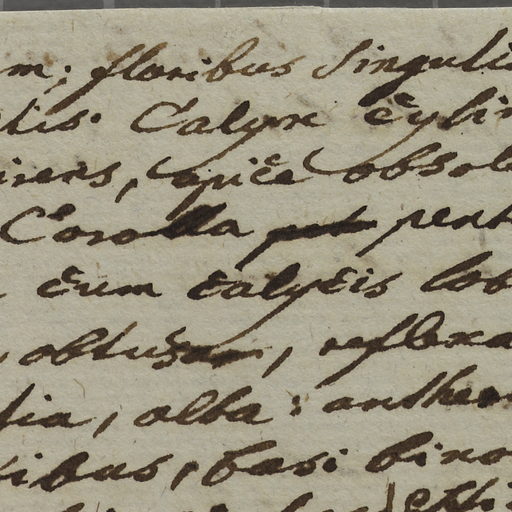 m; floribus singuli
tis. Calyx Cylin
irens, apice obsol
Corolla pet pent
cum calycis lob
obtusae, reflexa
tia, alba: anther
ibus, basi bino